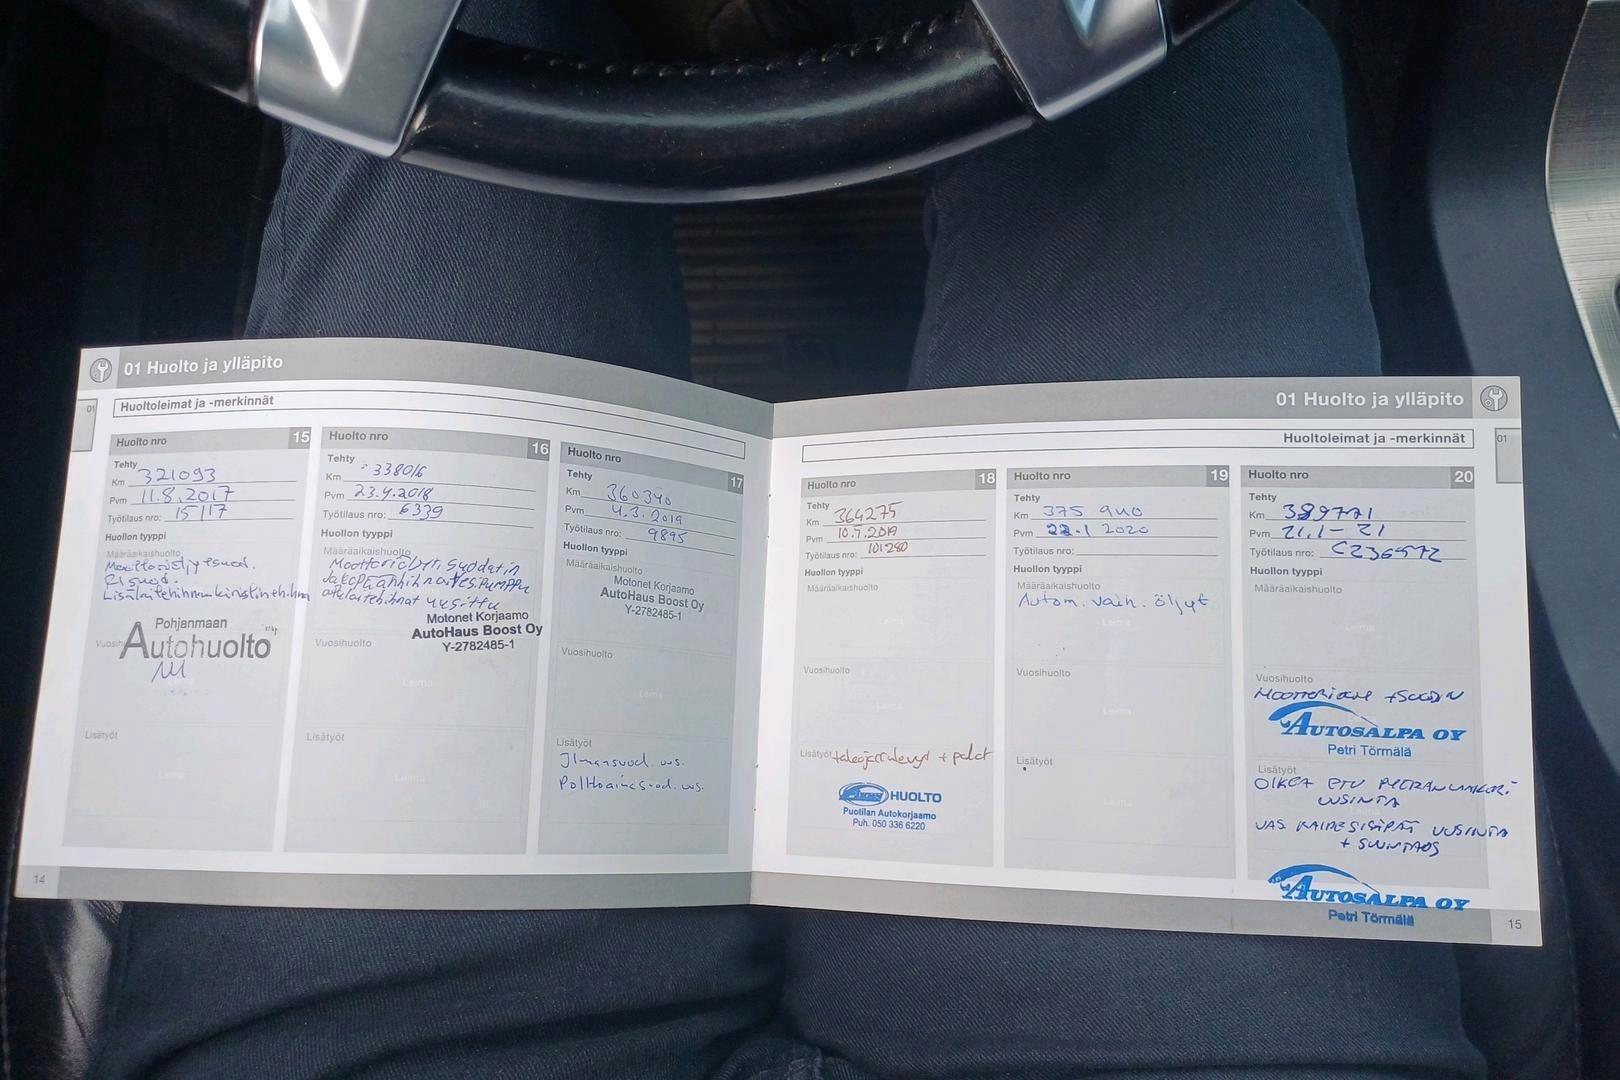 01 Huolto ja ylläpito
01
Huoltoleimat ja -merkinnät
Huolto nro 15
Tehty
Km 321093
Pvm 11.8.2017
Työtilaus nro: 15117
Huollon tyyppi
Määräaikaishuolto
Pohjanmaan
Autohuolto
Vuosihuolto
Lisätyöt
Leima
14
Huolto nro 16
Tehty
Km 338016
Pvm 23.4.2018
Työtilaus nro: 6339
Huollon tyyppi
Määräaikaishuolto
uusittu
Motonet Korjaamo
AutoHaus Boost Oy
Y-2782485-1
Vuosihuolto
Leima
Lisätyöt
Leima
Huolto nro 17
Tehty
Km 360340
Pvm 4.3.2019
Työtilaus nro: 9895
Huollon tyyppi
Määräaikaishuolto
Motonet Korjaamo
AutoHaus Boost Oy
Y-2782485-1
Vuosihuolto
Leima
Lisätyöt
Ilmansuod. uus.
Polttoainesuod. uus.
01 Huolto ja ylläpito
Huoltoleimat ja -merkinnät
01
Huolto nro 18
Tehty
Km 364275
Pvm 10.7.2019
Työtilaus nro: 101280
Huollon tyyppi
Määräaikaishuolto
Leima
Vuosihuolto
Leima
Lisätyöt takajarrulevyt + palat
HUOLTO
Puotilan Autokorjaamo
Puh. 050 336 6220
Huolto nro 19
Tehty
Km 375 940
Pvm 22.1 2020
Työtilaus nro:
Huollon tyyppi
Määräaikaishuolto
Autom. vaih. öljyt
Leima
Vuosihuolto
Leima
Lisätyöt
Leima
Huolto nro 20
Tehty
Km 389771
Pvm 21.1-21
Työtilaus nro: C236572
Huollon tyyppi
Määräaikaishuolto
Leima
Vuosihuolto
AUTOSALPA OY
Petri Törmälä
Lisätyöt
OIKEA ETU
UUSINTA
VAS UUSINTA
+ SUUNTAUS
AUTOSALPA OY
Petri Törmälä
15